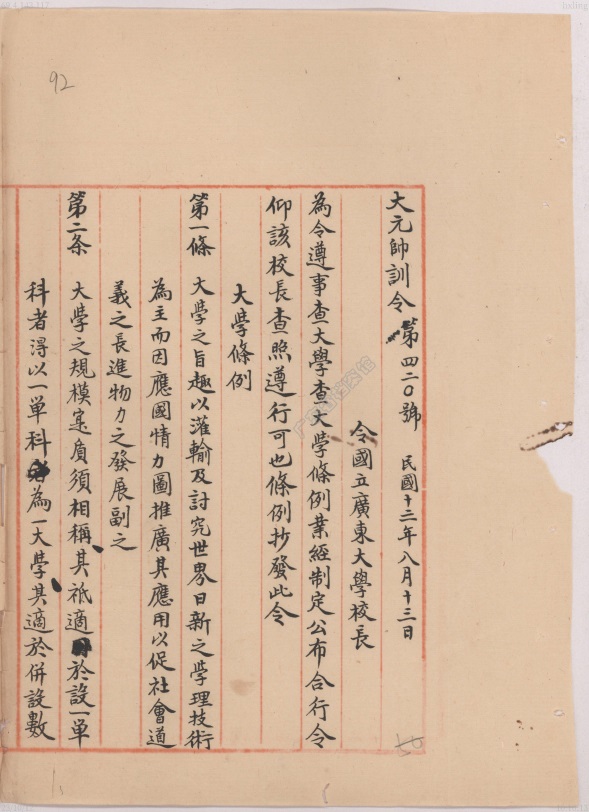 92
大元帥訓令第四二〇號 民國十三年八月十三日
令國立廣東大學校長
為令遵事查大學查大學條例業經制定公布合行令
仰該校長查照遵行可也條例抄發此令
大學條例
第一條 大學之旨趣以灌輸及討究世界日新之學理技術
為主而因應國情力圖推廣其應用以促社會道
義之長進物力之發展副之
第二条 大學之規模寔質須相稱其祇適於設一单
科者得以一单科為一大學其適於併設數
50